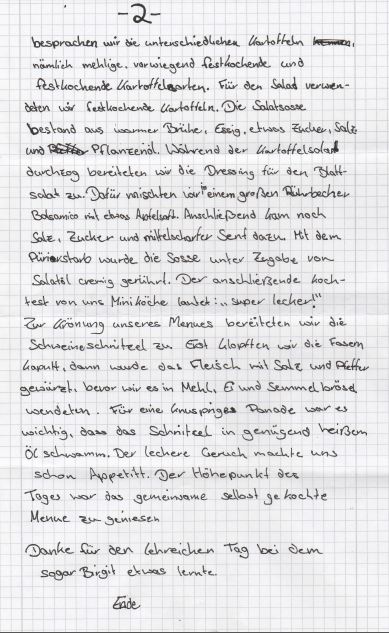 -2-
besprachen wir die unterschiedlichen Kartoffeln
nämlich mehlige, vorwiegend festkochende und
festkochende Kartoffelsorten. Für den Salat verwen-
deten wir festkochende Kartoffeln. Die Salatsosse
bestand aus warmer Brühe, Essig, etwas Zucker, Salz
und Pflanzenöl. Während der Kartoffelsalat
durchzog bereiteten wir die Dressing für den Blatt-
salat zu. Dafür mischten wir einem großen Rührbecher
Balsamico mit etwas Apfelsaft. Anschließend kam noch
Salz, Zucker und mittelscharfer Senf dazu. Mit dem
Pürierstab wurde die Sosse unter Zugabe von
Salatöl cremig gerührt. Der anschließende Koch-
test von uns Miniköche lautet: "super lecker!"
Zur Krönung unseres Menues bereiteten wir die
Schweineschnitzel zu. Erst klopften wir die Fasern
kaputt, dann wurde das Fleisch mit Salz und Pfeffer
gewürzt, bevor wir es in Mehl, Ei und Semmelbrösel
wendeten. Für eine knusprige Panade war es
wichtig, dass das Schnitzel in genügend heißem
Öl schwamm. Der leckere Geruch machte uns
schon Appetitt. Der Höhepunkt des
Tages war das gemeinsame selbst gekochte
Menue zu geniesen
Danke für den lehreichen Tag bei dem
sogar Birgit etwas lernte.
Ende